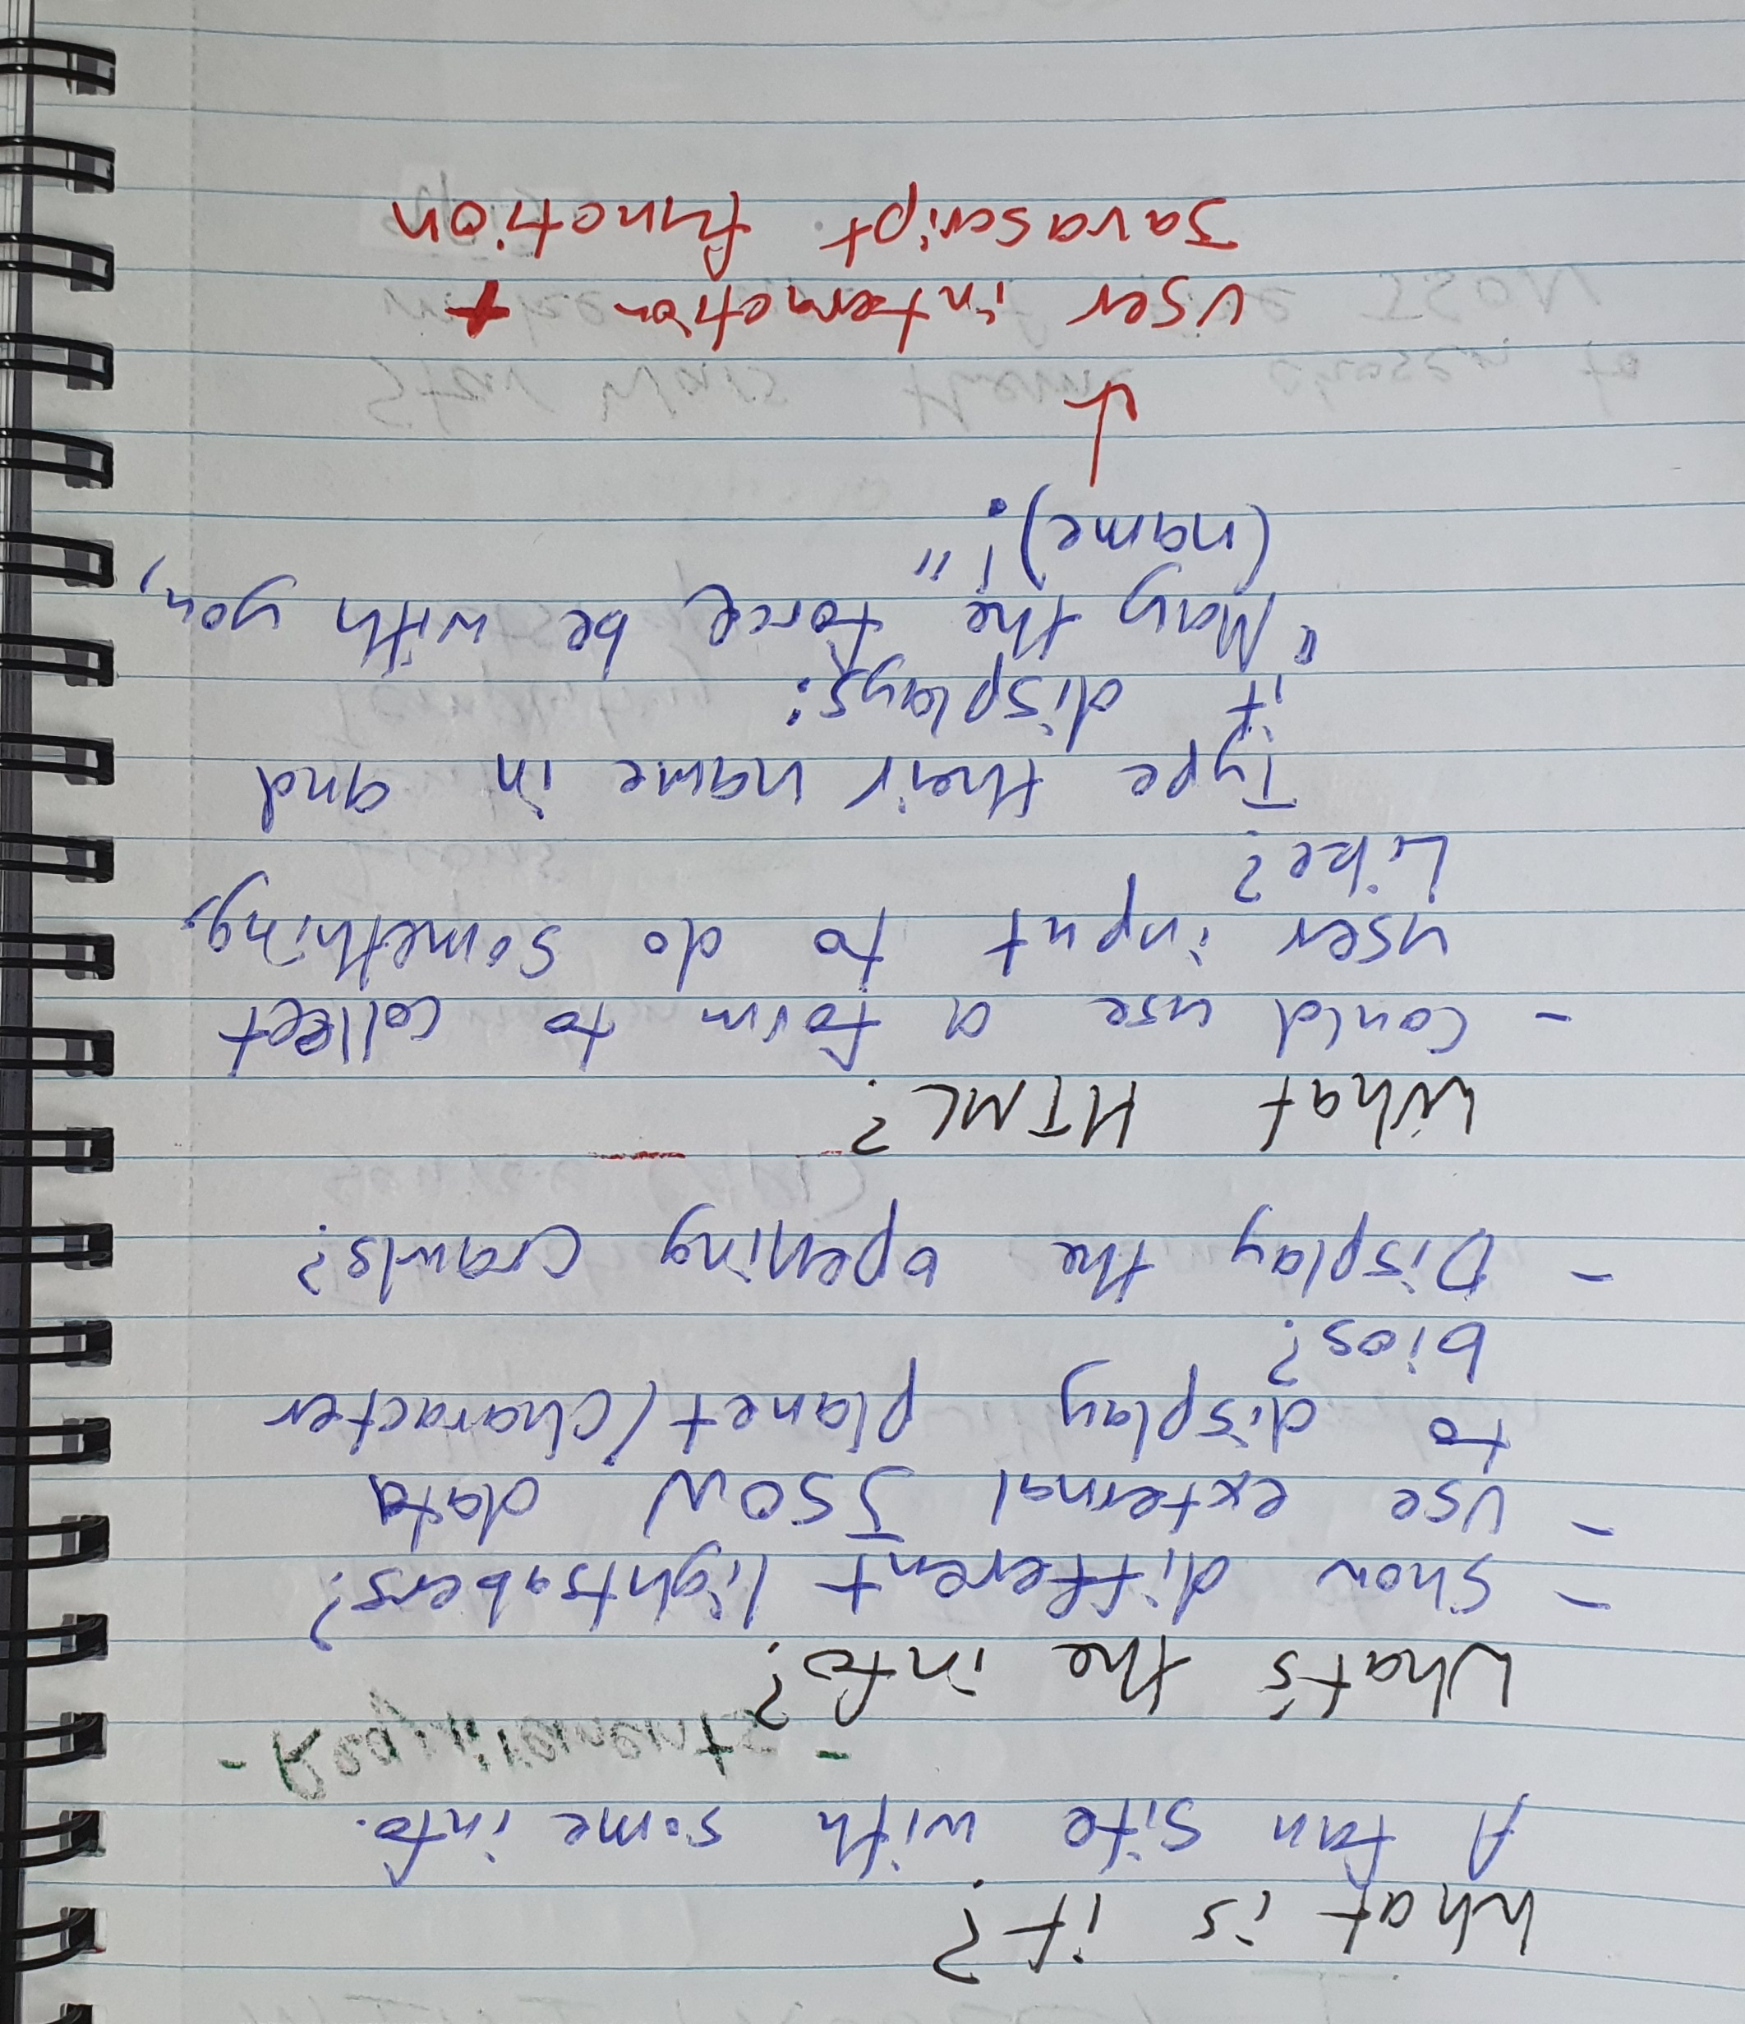 What is it?
A fan site with some info.
What's the info?
- Show different lightsabers?
- Use external JSON data
to display planet/character
bios?
- Display the opening crawls?
What HTML?
- Could use a form to collect
user input to do something,
Like?
Type their name in and
it displays:
"May the force be with you,
(name)!"
User interaction +
Javascript function